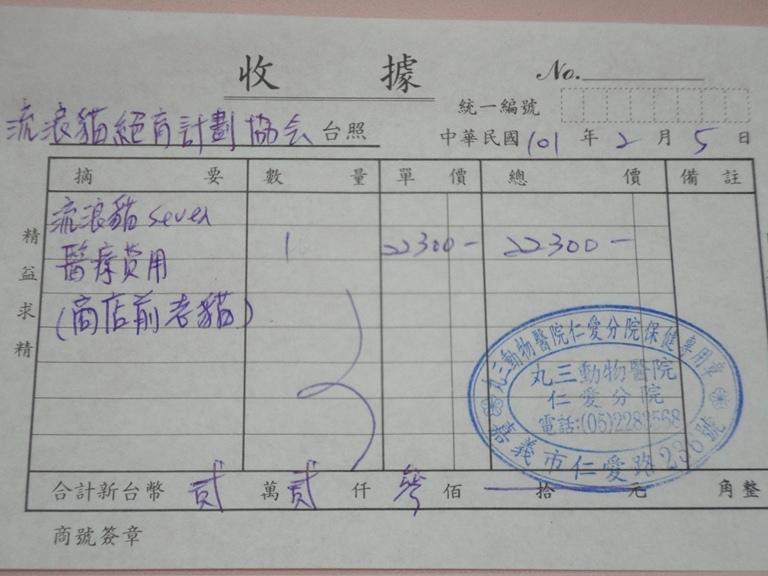 收據
No.
統一編號
流浪貓絕育計劃協会台照
中華民國101年2月5日
摘要 數量 單價 總價 備註
流浪貓seven
醫療費用 1 22300- 22300-
(商店前老貓)
精益求精
丸三動物醫院仁愛分院保健專用章
丸三動物醫院
仁愛分院
嘉義市仁愛路236號
合計新台幣 貳萬貳仟參佰 拾 元 角整
商號簽章